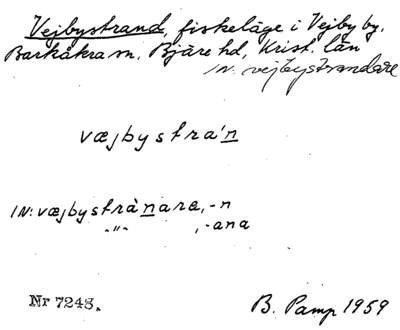 Vejbystrand, fiskeläge i Vejby by,
Barkåkra sn. Bjäre hd, Krist. län
IN. vejbystrandare
væjbystra'n
IN: væjbystrànara, -n
-"- , -ana
Nr 7248.
B. Pamp 1959